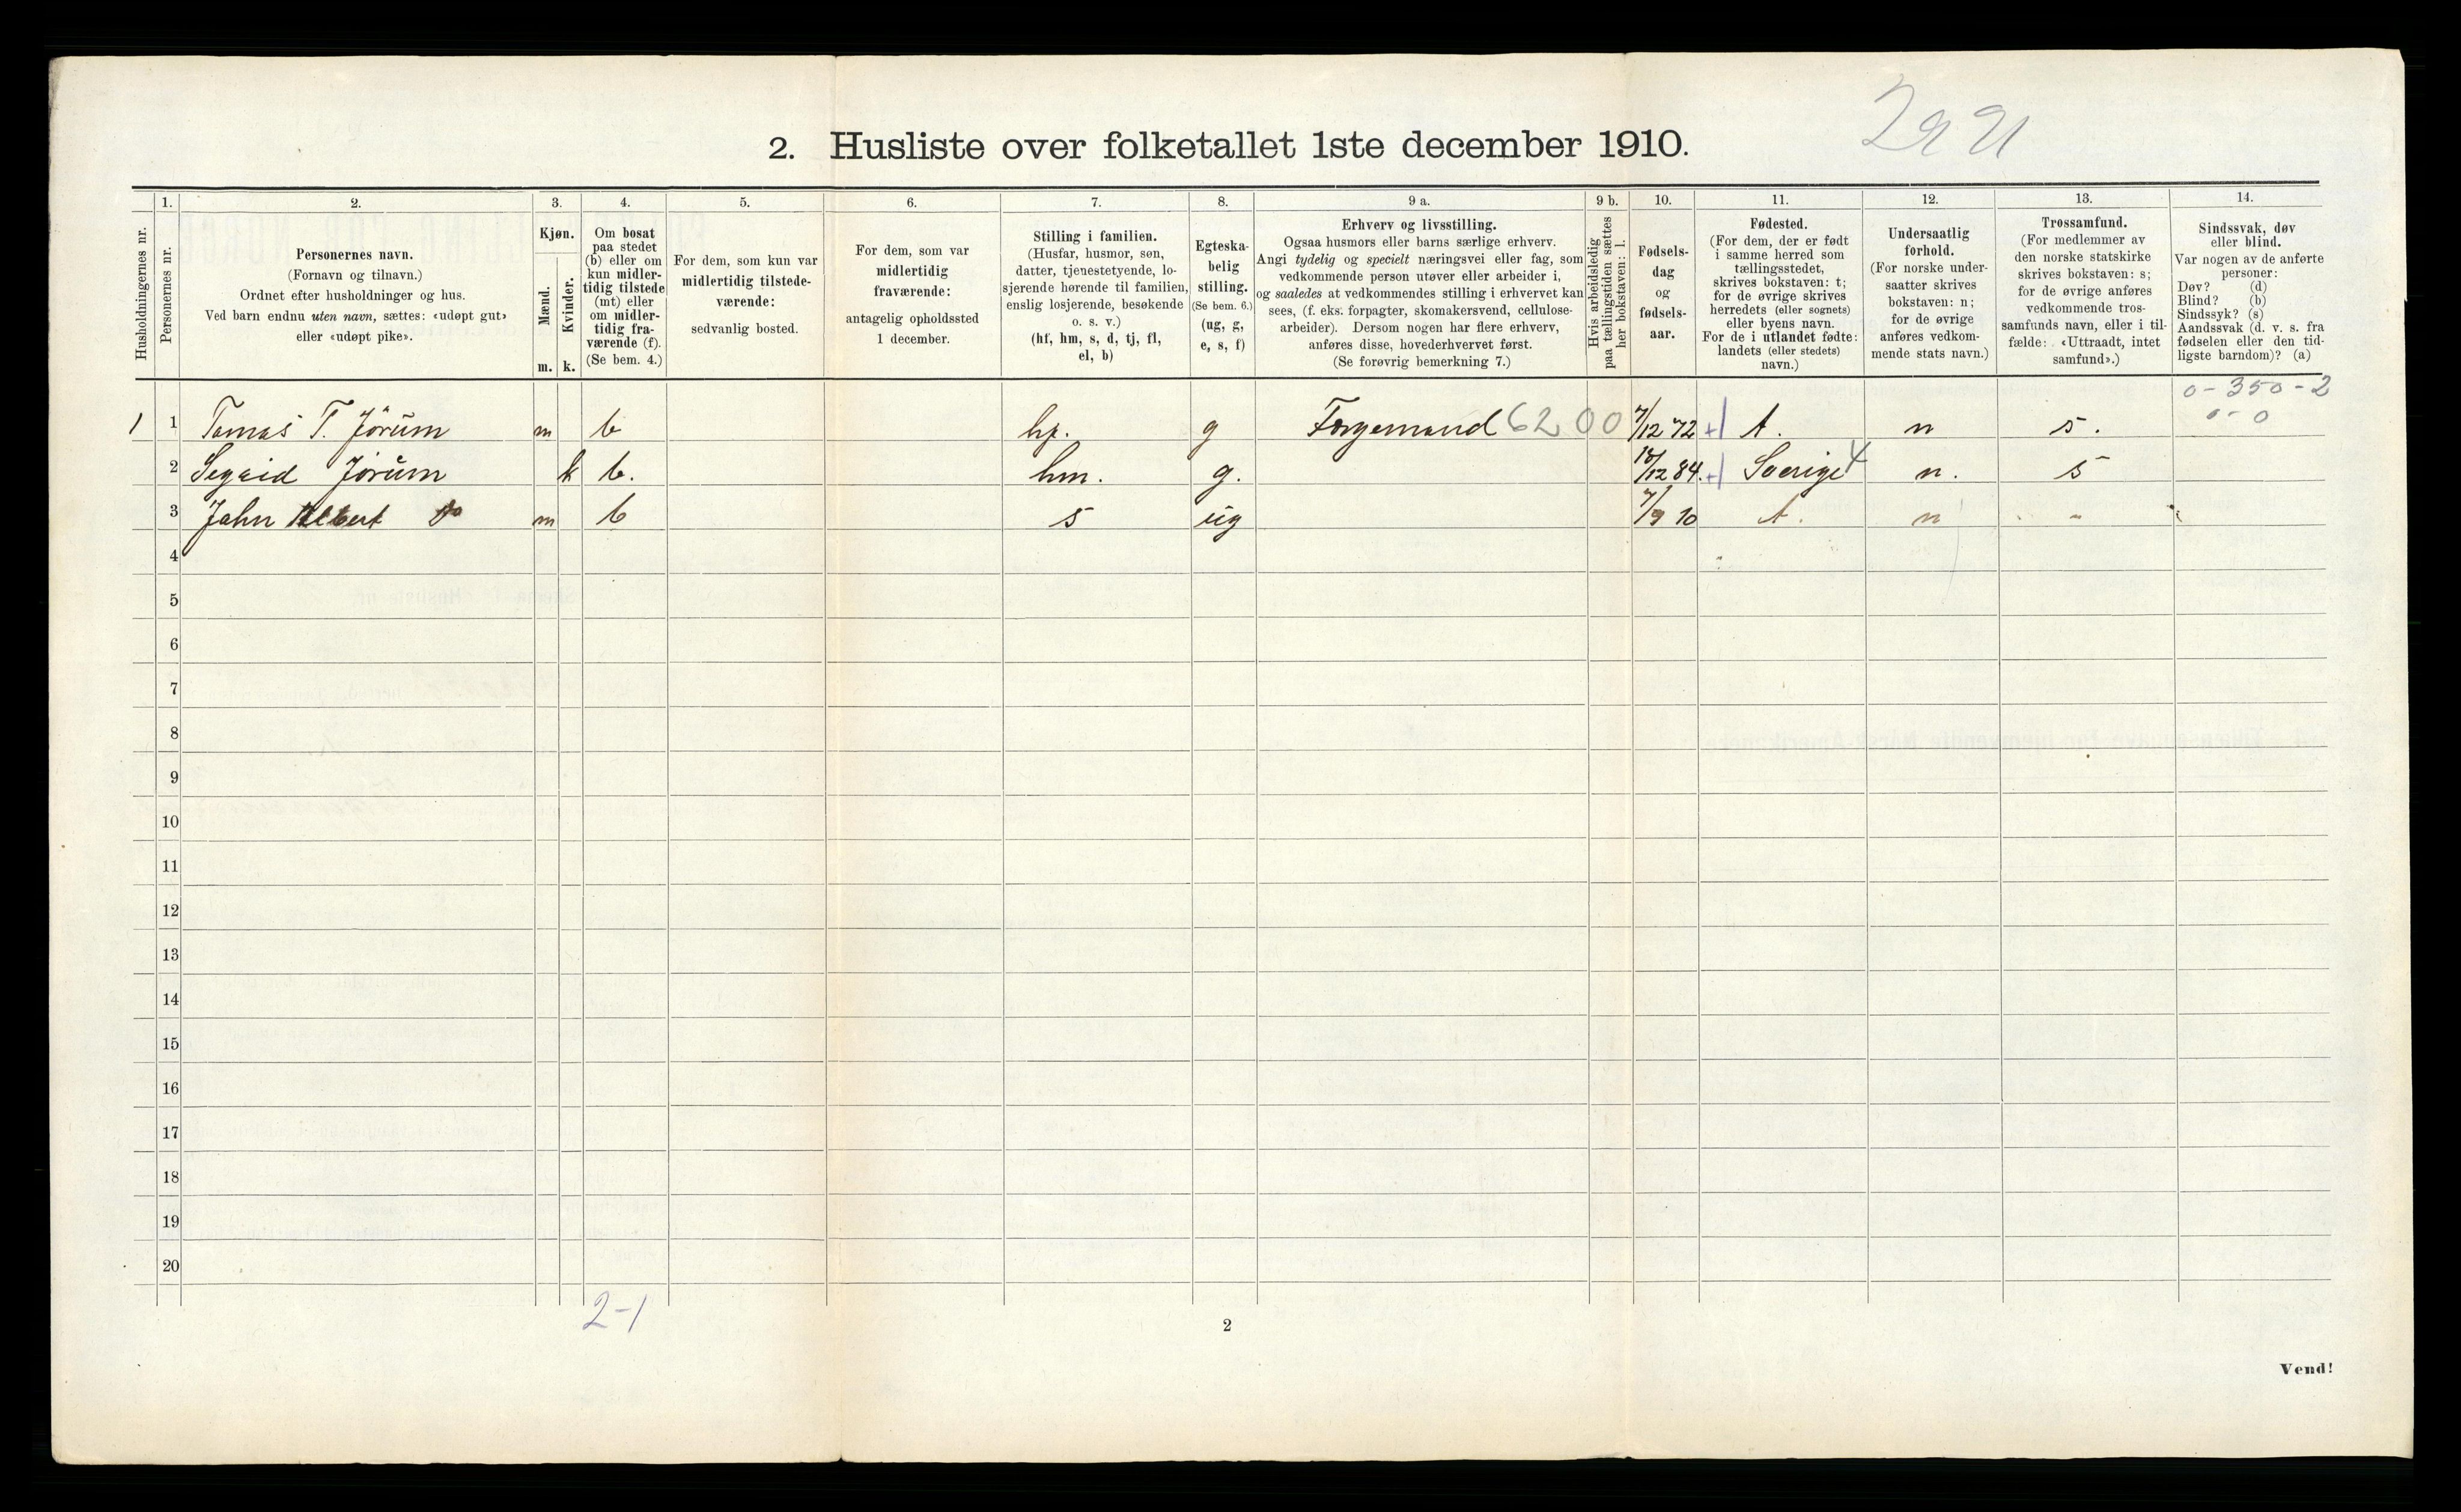 2. Husliste over folketallet 1ste december 1910.
Husholdningernes nr.
1.
Personernes nr.
2.
Personernes navn.
(Fornavn og tilnavn.)
Ordnet efter husholdninger og hus.
Ved barn endnu uten navn, sættes: «udøpt gut»
eller «udøpt pike».
3.
Kjøn.
Mænd.
Kvinder.
m. k.
4.
Om bosat
paa stedet
(b) eller om
kun midler-
tidig tilstede
(mt) eller
om midler-
tidig fra-
værende (f).
(Se bem. 4.)
5.
For dem, som kun var
midlertidig tilstede-
værende:
sedvanlig bosted.
6.
For dem, som var
midlertidig
fraværende:
antagelig opholdssted
1 december.
7.
Stilling i familien.
(Husfar, husmor, søn,
datter, tjenestetyende, lo-
sjerende hørende til familien,
enslig losjerende, besøkende
o. s. v.)
(hf, hm, s, d, tj, fl,
el, b)
8.
Egteska-
belig
stilling.
(Se bem. 6.)
(ug, g,
e, s, f)
9 a.
Erhverv og livsstilling.
Ogsaa husmors eller barns særlige erhverv.
Angi tydelig og specielt næringsvei eller fag, som
vedkommende person utøver eller arbeider i,
og saaledes at vedkommendes stilling i erhvervet kan
sees, (f. eks: forpagter, skomakersvend, cellulose-
arbeider). Dersom nogen har flere erhverv,
anføres disse, hovederhvervet først.
(Se forøvrig bemerkning 7.)
9 b.
Hvis arbeidsledig
paa tællingstiden sættes
her bokstaven: l.
10.
Fødsels-
dag
og
fødsels-
aar.
11.
Fødested.
(For dem, der er født
i samme herred som
tællingsstedet,
skrives bokstaven: t;
for de øvrige skrives
herredets (eller sognets)
eller byens navn.
For de i utlandet fødte:
landets (eller stedets)
navn.)
12.
Undersaatlig
forhold.
(For norske under-
saatter skrives
bokstaven: n;
for de øvrige
anføres vedkom-
mende stats navn.)
13.
Trossamfund.
(For medlemmer av
den norske statskirke
skrives bokstaven: s;
for de øvrige anføres
vedkommende tros-
samfunds navn, eller i til-
fælde: «Uttraadt, intet
samfund».)
14.
Sindssvak, døv
eller blind.
Var nogen av de anførte
personer:
Døv? (d)
Blind? (b)
Sindssyk? (s)
Aandssvak (d. v. s. fra
fødselen eller den tid-
ligste barndom)? (a)
0-350-2
0-0
1 1 Tomas T. Jörum m b hf. g Forgemand 6200 7/12 72 t. n s.
2 Segrid Jörum k b. hm. g. 18/12 84. Sverige 4 n. s
3 Jahn Albert do m b s ug 7/9 10 t. n "
4
5
6
7
8
9
10
11
12
13
14
15
16
17
18
19
20
2-1
2
Vend!